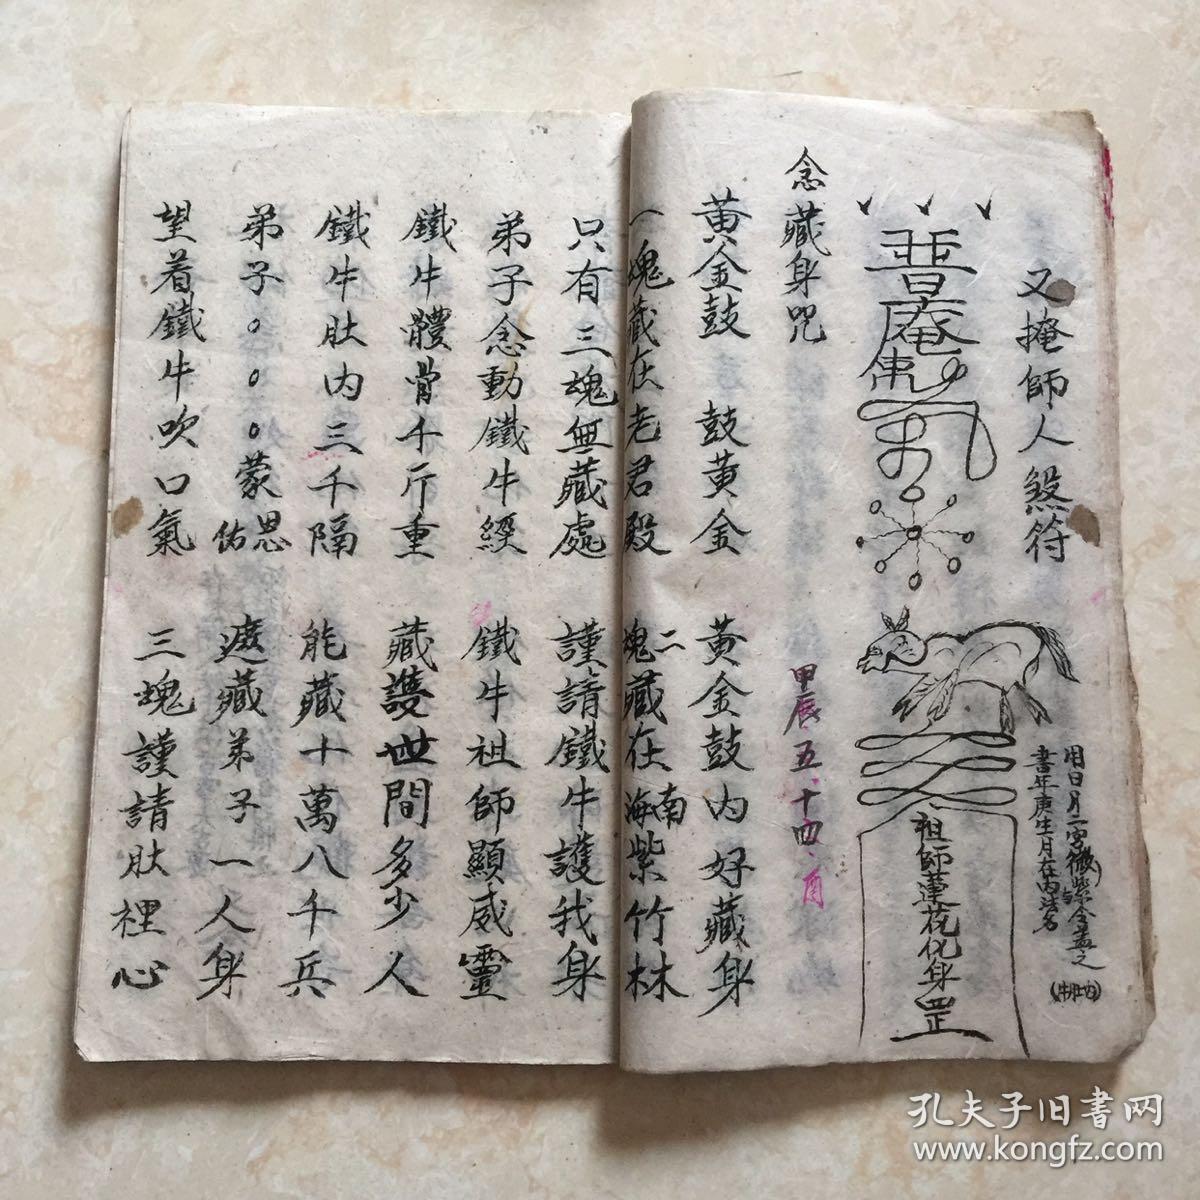 又掩師人煞符
普庵
祖師蓮花化身罡
用日月二字
書年庚生月在內法名
念藏身咒
甲辰五十四酉
黃金鼓　鼓黃金　黃金鼓內好藏身
一魂藏在老君殿　二魂藏在南海紫竹林
只有三魂無藏處　謹請鐵牛護我身
弟子念動鐵牛經　鐵牛祖師顯威靈
鐵牛體骨千斤重　藏護世間多少人
鐵牛肚內三千隔　能藏十萬八千兵
弟子。。。蒙恩佑　遮藏弟子一人身
望着鐵牛吹口氣　三魂謹請肚裡心
孔夫子旧书网
www.kongfz.com